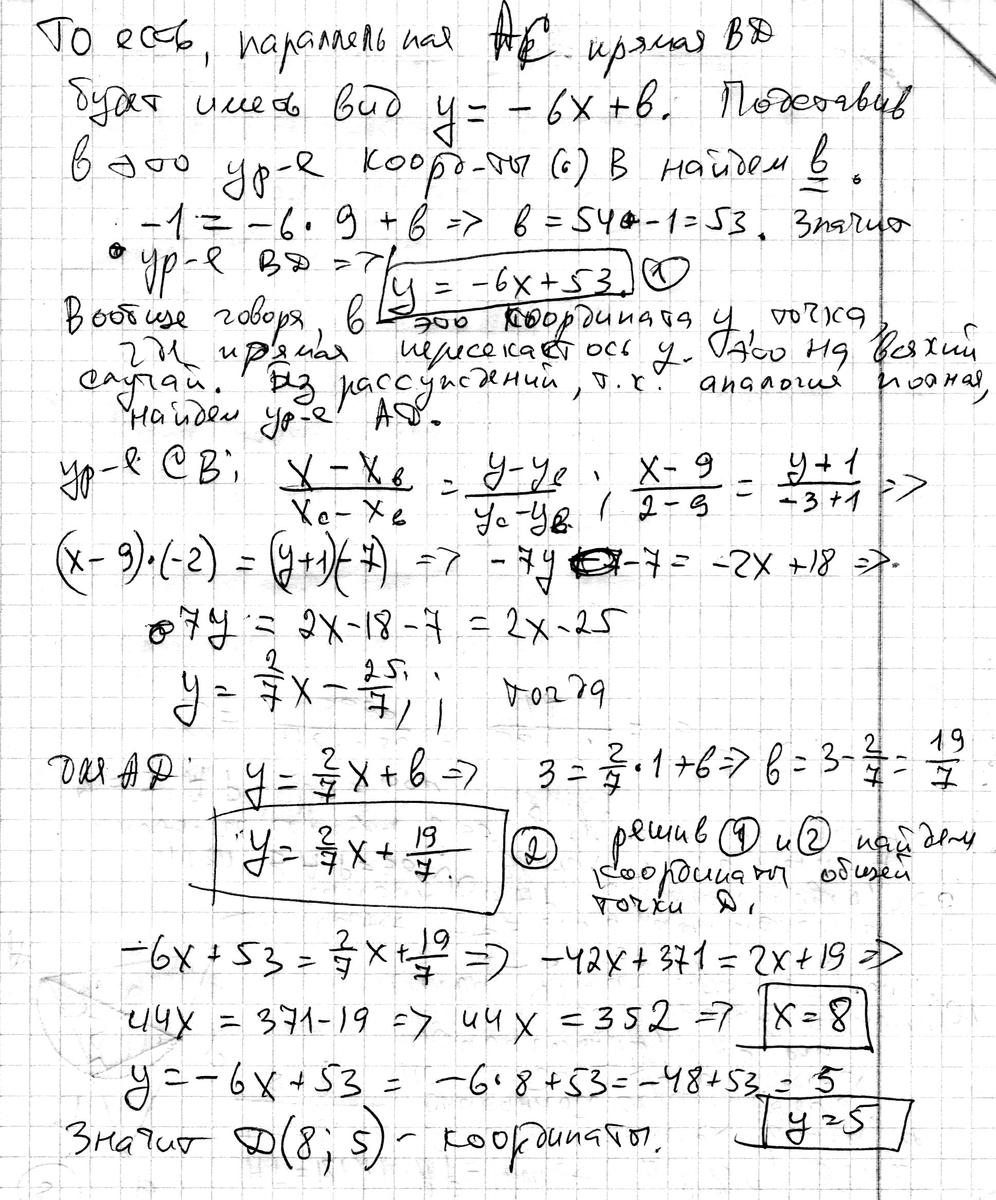 То есть, параллельная AC прямая BD
будет иметь вид y = - 6x + b. Подставив
в это ур-е коорд-ты (·) B найдем b.
-1 = -6 · 9 + b => b = 54 - 1 = 53. Значит
ур-е BD => y = -6x + 53. ①
Вообще говоря, в это координата y, точка,
где прямая пересекает ось y. Это на всякий
случай. Без рассуждений, т.к. аналогия полная,
найдем ур-е AD.
ур-е CB; (x - x_B)/(x_C - x_B) = (y - y_B)/(y_C - y_B) ; (x - 9)/(2 - 9) = (y + 1)/(-3 + 1) =>
(x - 9)·(-2) = (y+1)(-7) => -7y -7 = -2x + 18 =>
7y = 2x - 18 - 7 = 2x - 25
y = 2/7 x - 25/7 ; тогда
для AD: y = 2/7 x + b => 3 = 2/7 · 1 + b => b = 3 - 2/7 = 19/7
y = 2/7 x + 19/7. ② решив ① и ② найдем
координаты общей
точки D.
-6x + 53 = 2/7 x + 19/7 => -42x + 371 = 2x + 19 =>
44x = 371 - 19 => 44x = 352 => x = 8
y = -6x + 53 = -6·8 + 53 = -48 + 53 = 5
y = 5
Значит D(8; 5) - координаты.